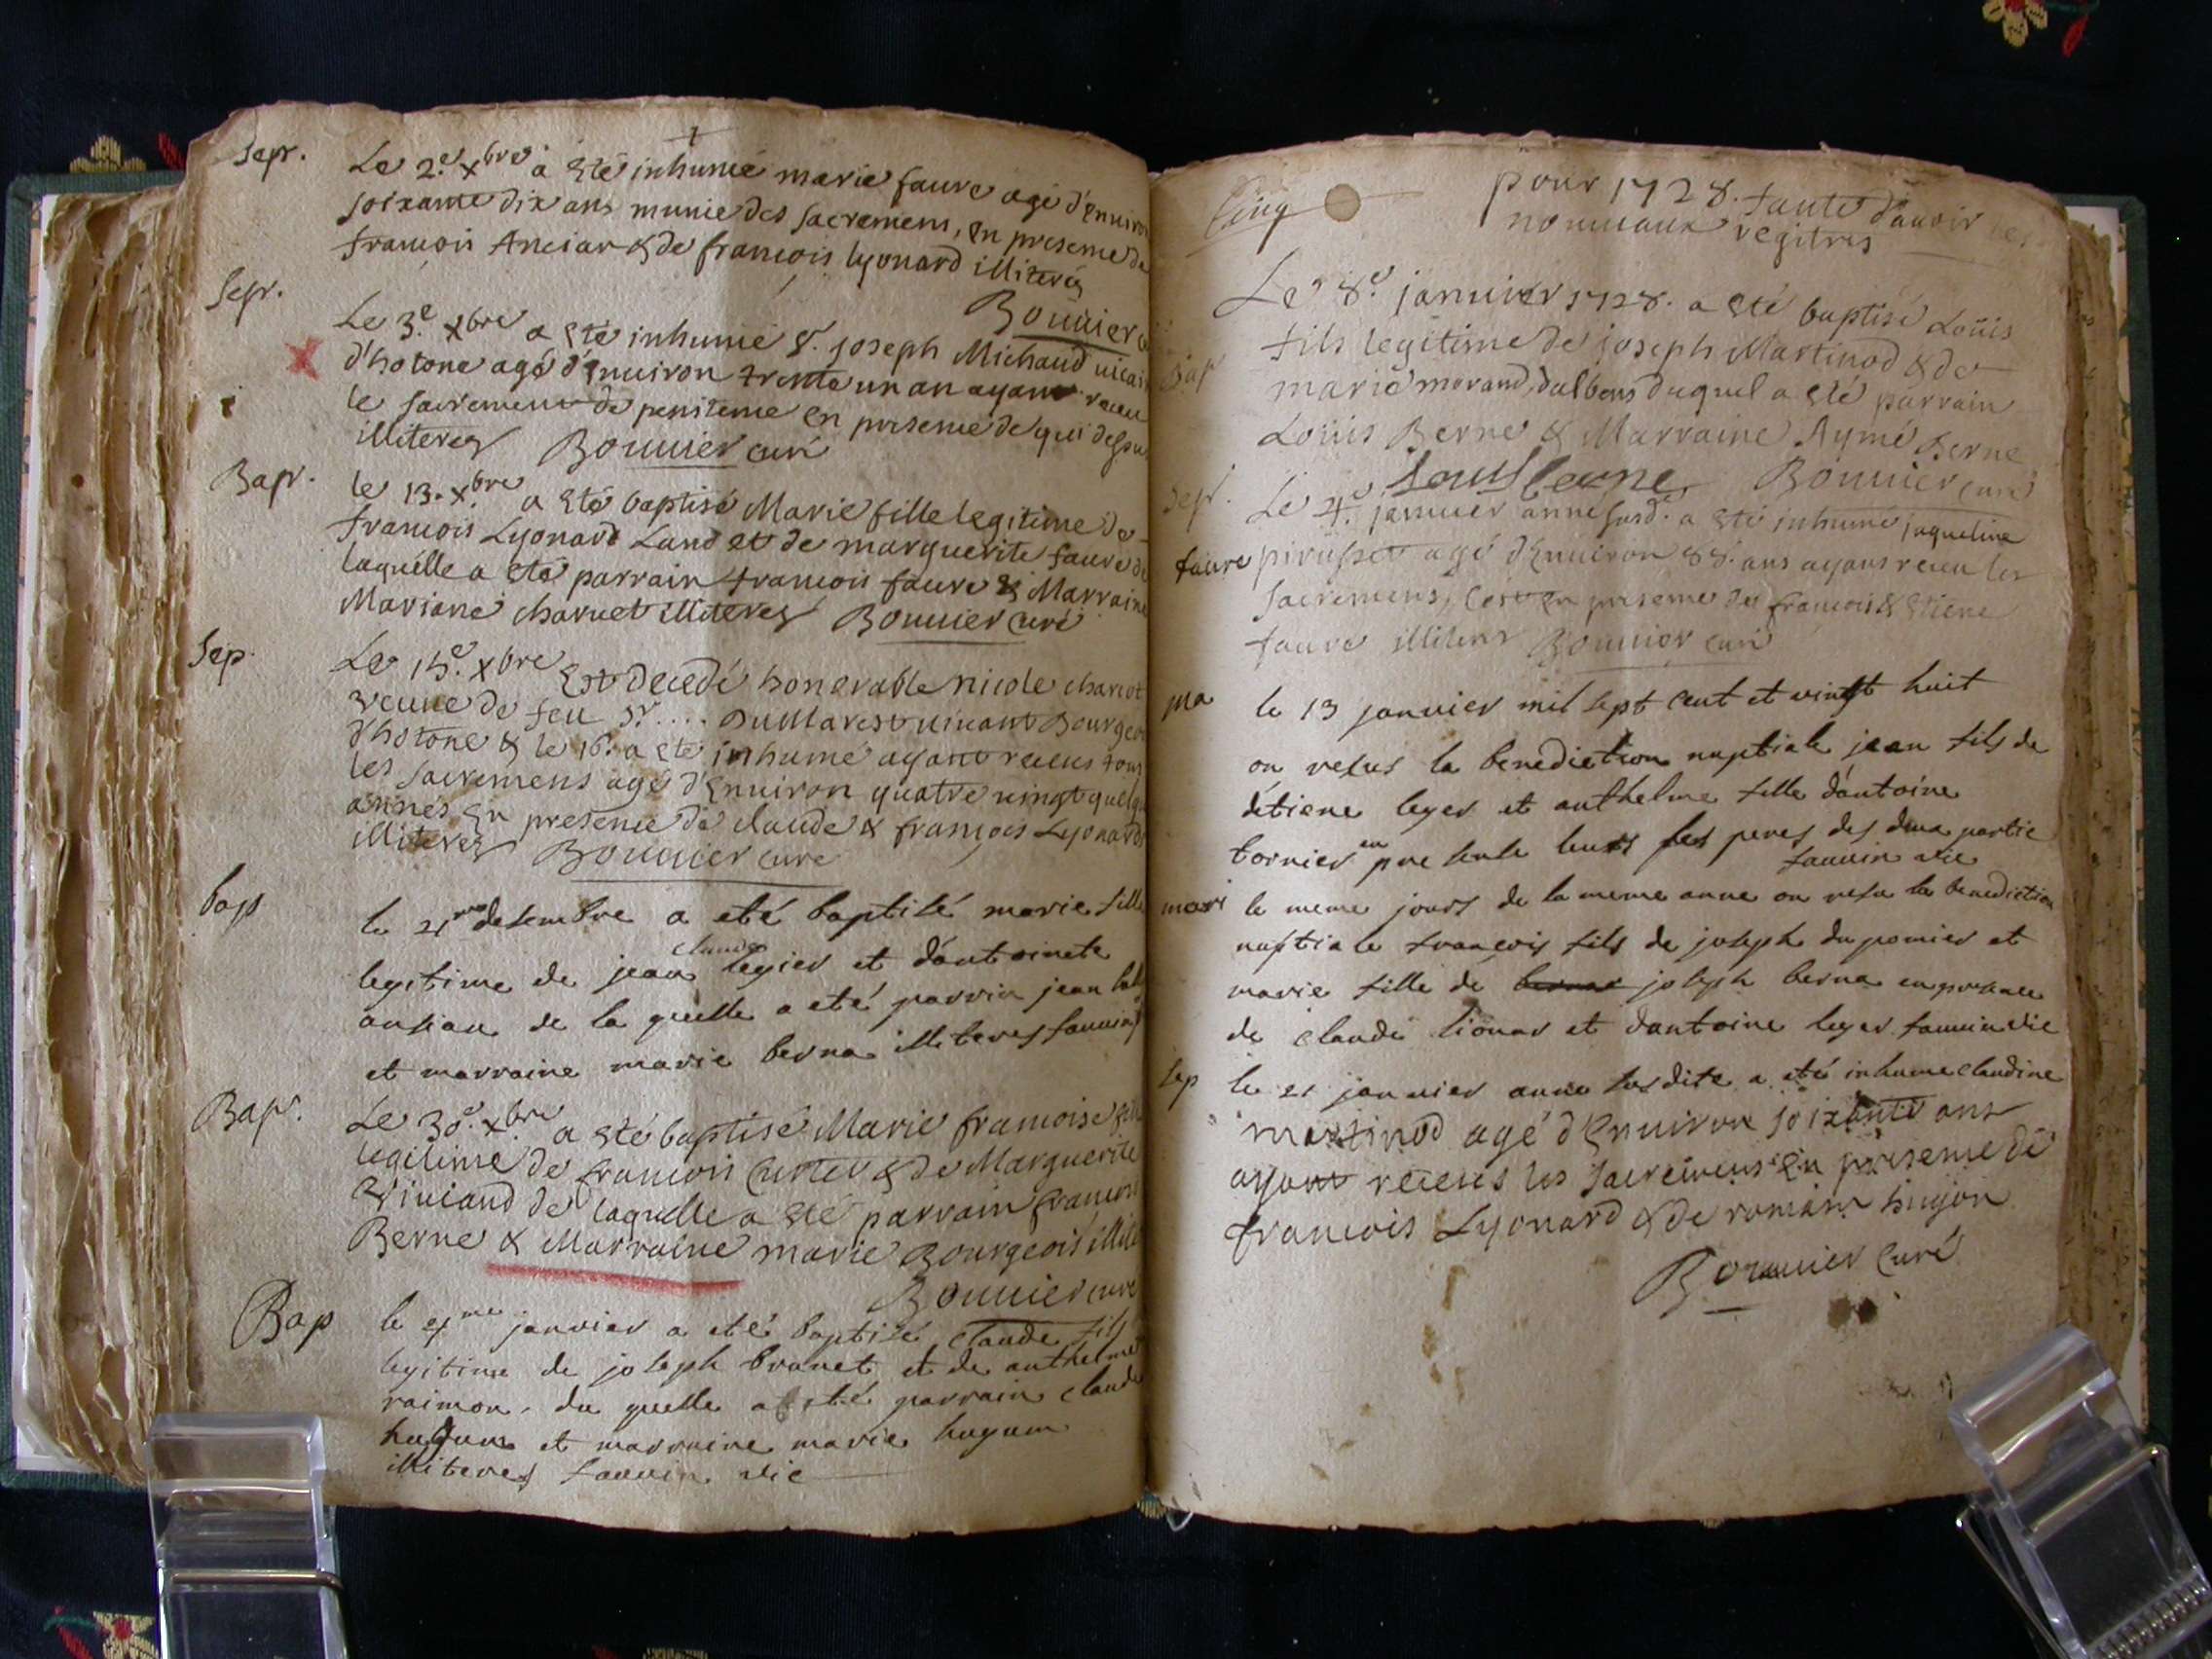 Sepr.
Le 2.e xbre a eté inhumé marie faure agé d'enuiron
soixante dix ans munie des sacremens, en presence de
francois Anciar & de francois lyonard illiterés
Bouuier
Sepr.
Le 3.e xbre a eté inhumé Sr. joseph Michaud uicai
d'hotone agé d'enuiron trente un an ayant receu
le sacrement de penitence en presence de qui dessus
illiterés Bouuier curé
Bapt.
le 13. xbre a eté baptisé Marie fille legitime de
francois Lyonard Land et de marguerite faure de
laquelle a eté parrain francois faure & Marraine
Mariane charuet illiterés Bouuier curé
Sep.
Le 15.e xbre est decedé honerable nicole chariot
veuue de feu Sr.... Dumarest uiuant Bourgeoi
d'hotone & le 16. a eté inhumé ayant receus tous
les sacremens agé d'enuiron quatre uingt quelqu
annés en presence de claude & francois Lyonards
illiterés Bouuier curé
bap
le 21me desembre a eté baptisé marie fille
legitime de jean claude legier et d'antoinete
ansian de la quelle a eté parrin jean
et marraine marie berna illiteres fauuin
Bapt.
Le 30.e xbre a eté baptisé Marie francoise fill
legitime de francois Curtet & de Marguerite
Uiniand de laquelle a eté parrain francois
Berne & Marraine marie Bourgeois illité
Bouuier curé
Bap
le me janvier a eté baptisé claude fils
legitime de joseph brunet et de anthelme
raimon. du quelle a eté parrain claude
hugum et marraine marie hugum
illiteres fauuin vic
Cinq
pour 1728. faute d'auoir des
nouueaux regitres
Bap
Le 8.e januier 1728. a eté baptisé Loüis
fils legitime de joseph Martinod & de
marie morand, dalbens duquel a eté parrain
Loüis Berne & Marraine Aymé Berne
Louis berne Bouuier curé
Sepr.
Le 4.e januier anne susd. a eté inhumé jaqueline
faure pirusset agé d'enuiron 88. ans ayans receu les
sacremens, c'est en presence des francois & Etiene
faure illiters Bouuier curé
ma
le 13 janvier mil sept cent et vingt huit
on resus la benediction nuptiale jean fils de
detiene leger et anthelme fille d'antoine
bornier en presente leurs ses peres des deux partie
fauuin vic
mari
le meme jours de la meme anne on resu la benediction
nuptiale francois fils de joseph du pomier et
marie fille de joseph berna en presance
de claude lionar et dantoine leger fauuin vic
sep
le 21 janvier anne susdite a eté inhume claudine
martinod agé d'enuiron soixante ans
ayant receus les sacremens en presence de
francois Lyonard & de romain hugon
Bouuier Curé